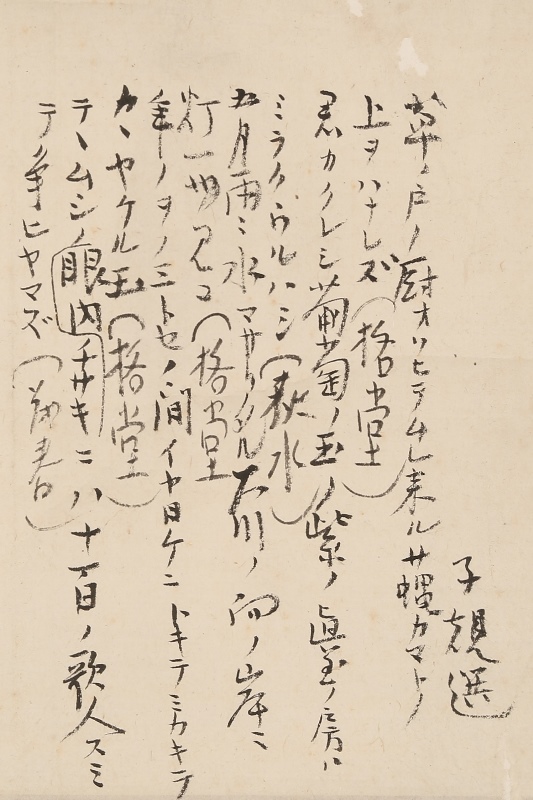 子規選
草ノ戸ノ厨オソヒテムレ来ルサ蝿カマドノ
上ヲハナレズ（格堂）
君カクレシ葡萄ノ玉ノ紫ノ眞玉ノ房ハ
ミラクウルハシ（萩水）
五月雨ニ水マサリタル大川ノ向ノ岸ニ
灯一ツ見ユ（格堂）
年ノヲノ三トセノ間イヤ日ケニトキテミカキテ
カヽヤケル玉（格堂）
テヽムシノ眼内チサキニハ十百ノ歌人スミ
テノ争ヒヤマズ（春）